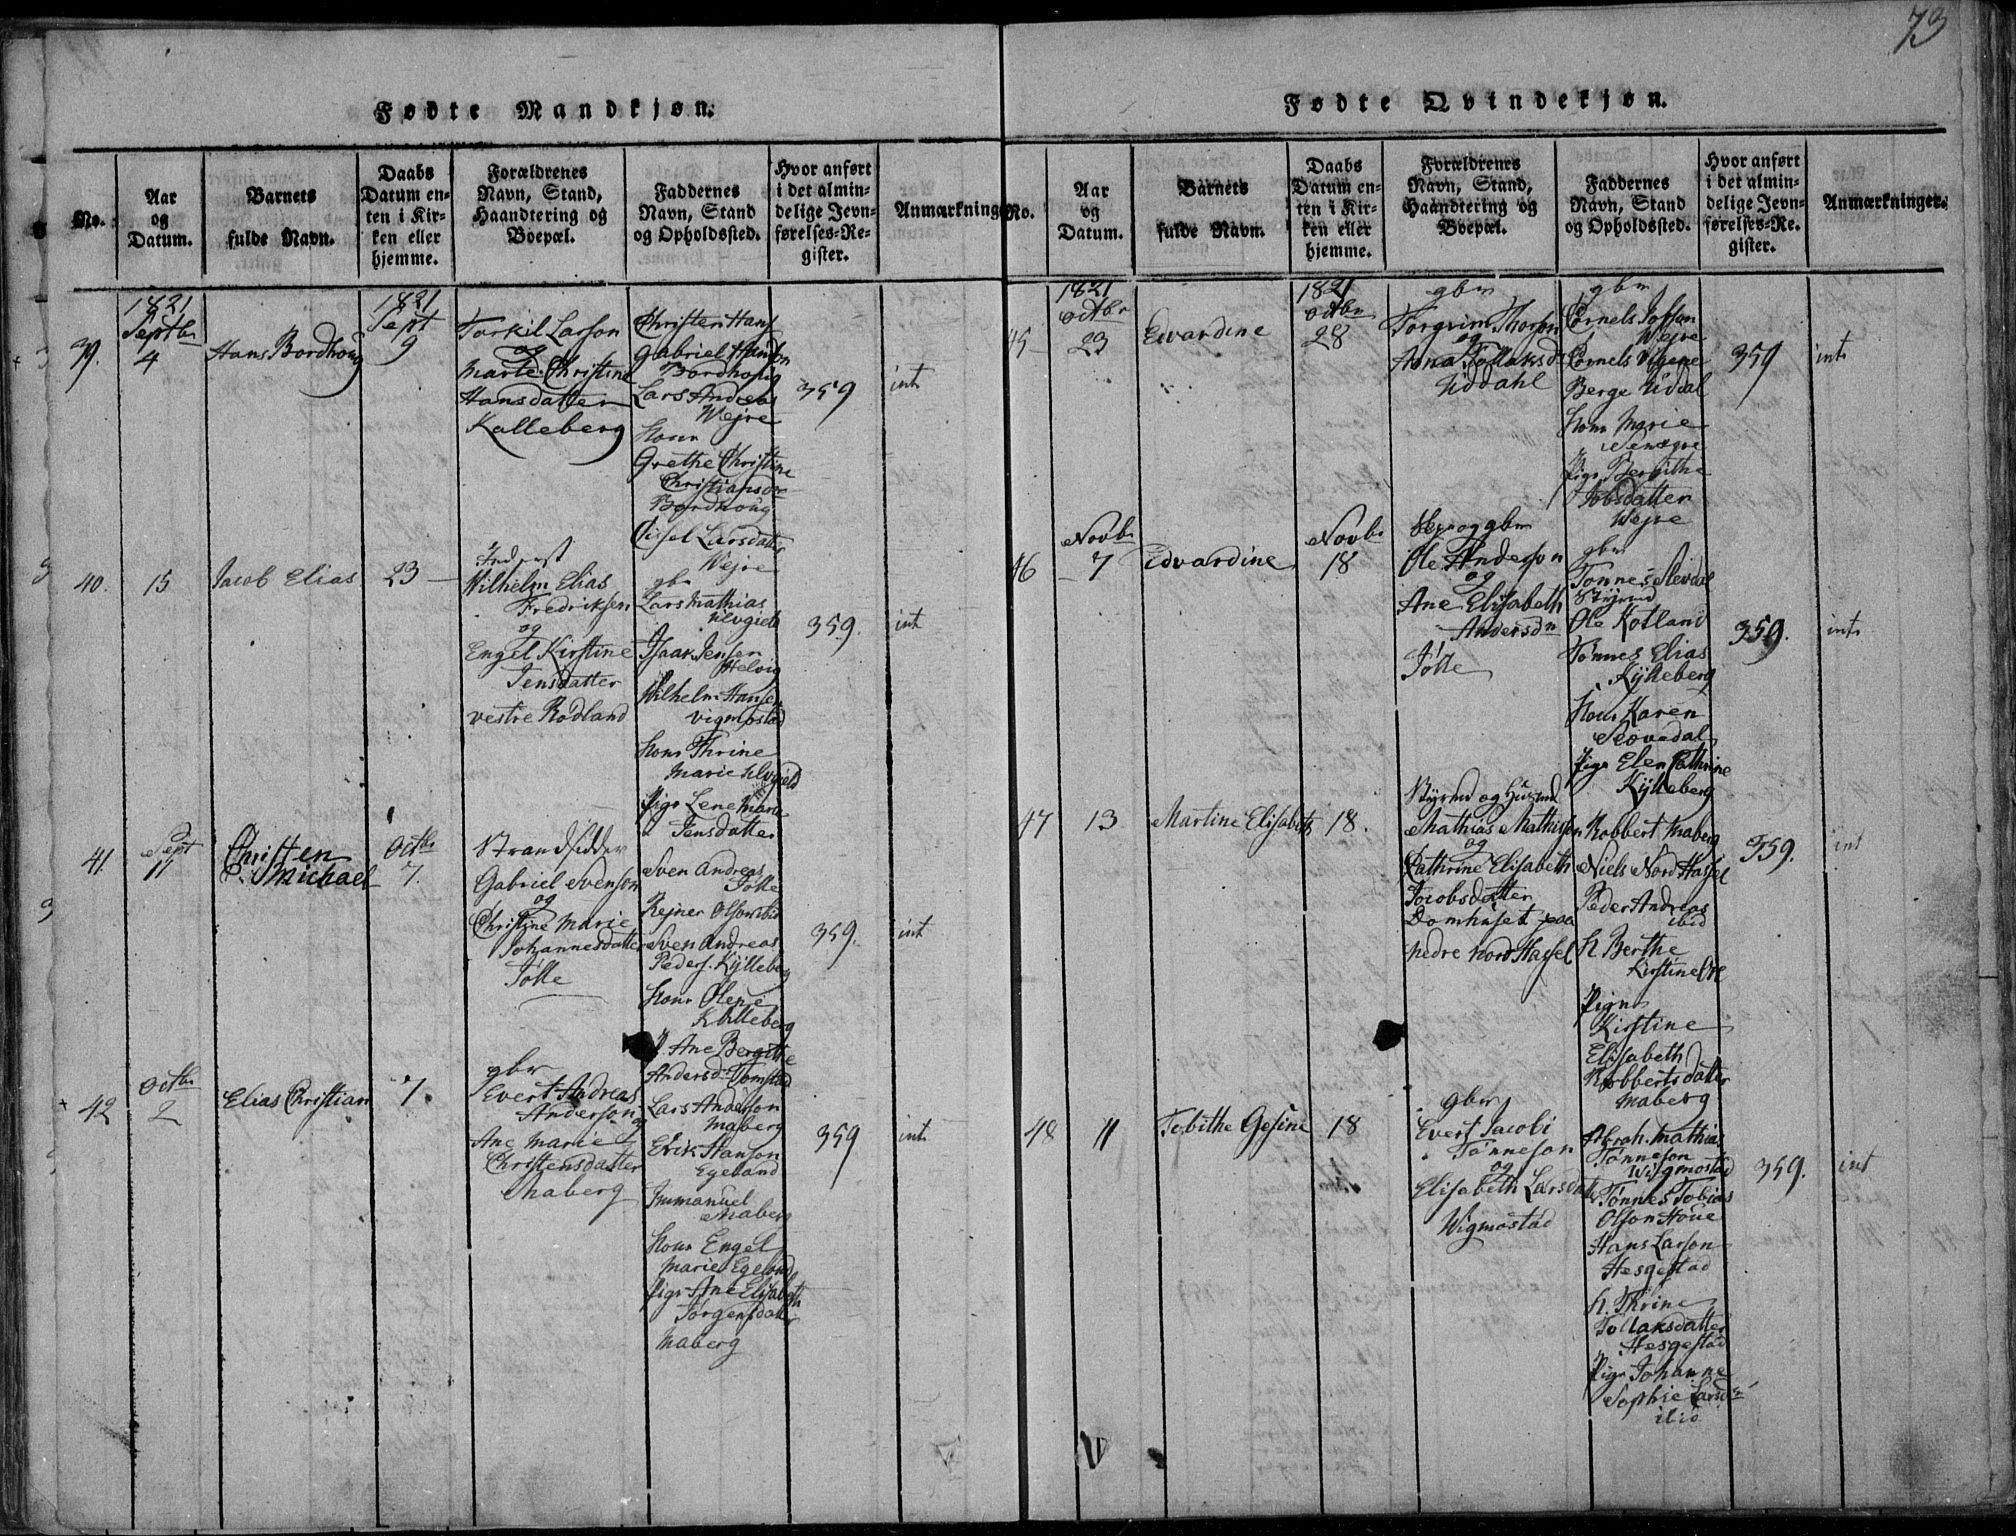 73
Fødte Mandkjøn.
No.
Aar
og
Datum.
Barnets
fulde Navn.
Daabs
Datum en-
ten i Kir-
ken eller
hjemme.
Forældrenes
Navn, Stand,
Haandtering og
Boepæl.
Faddernes
Navn, Stand
og Opholdssted.
Hvor anført
i det almin-
delige Jevn-
førelses-Re-
gister.
Anmærkninger
39.
1821
Septbr
4
Hans Bordhoug
1821
Sept
9
Torkil Larson
og
Marte Christine
Hansdatter
Kalleberg
Christen Hans
Gabriel Hanson
Bordhoug
Lars Andreas
Wejre
Konr
Grethe Christine
Christiansdr
Bordhoug
Cidsel Larsdatter
Wejre
359
int
40.
15
Jacob Elias
23
Wilhelm Elias
Fredriksen
og
Engel Kirstine
Jensdatter
vestre Rödland
gbr
Lars Mathias
Isaak Jensen
Helvig
Wilhelm Hansen
Vigmostad
Konr Thrine
Marie
Pigr Lene Marie
Jensdatter
359.
int
41.
Sept
11
Christen
Michael
Octbr
7.
Strandsidder
Gabriel Svenson
og
Christine Marie
Johannesdatter
Jölle
Sven Andreas
Jölle
Rejner Olson ibid
Sven Andreas
Peders. Kylleberg
Konr Olene
Kylleberg
P. Ane Bergithe
Andersd. Tomstad
359.
int
42
Octbr
2
Elias Christian
7.
gbr
Evert Andreas
Anderson
og
Ane Marie
Christensdatter
Maberg
Lars Anderson
Maberg
Erik Hanson
Egeland
Immanuel
Maberg
Konr Engel
Marie Egeland
Pigr Ane Elisabeth
Jørgensdatter
Maberg
359
int
Fødte Qvindekjøn.
No.
Aar
og
Datum.
Barnets
fulde Navn.
Daabs
Datum en-
ten i Kir-
ken eller
hjemme.
Forældrenes
Navn, Stand,
Haandtering og
Boepæl.
Faddernes
Navn, Stand
og Opholdssted.
Hvor anført
i det almin-
delige Jevn-
førelses-Re-
gister.
Anmærkninger.
45
1821
octbr
23
Edvardine
1821
octbr
28
gbr
Torgrim Thorson
og
Anna Tollaksd
Uddahl
gbr
Cornels
Wejre
Cornels
Berge Uddal
Konr Marie
Pigr Bergithe
Jobsdatter
Wejre
359
int
46
Novbr
7
Edvardine
Novbr
18
og gbr
Ole Anderson
og
Ane Elisabeth
Andersdr
Jölle
gbr
Tønnes
Styrmd
Ole Kotland
Tønnes Elias
Kylleberg
Konr Karen
Skovedal
Pigr Elen Cathrine
Kylleberg
359.
int
47
13
Martine Elisabeth
18.
Styrmd og Husmd
Mathias Mathison
og
Cathrine Elisabeth
Jacobsdatter
Domhuset paa
nedre Nord Hassel
Robbert Maberg
Niels Nord Hassel
Peder Andreas
ibid
K Berthe
Kirstine Ore
Pigr
Kirstine
Elisabeth
Robbertsdatter
Maberg
359.
int
48
11
Tobithe Gesine
18
gbr
Evert Jacobi
Tønneson
og
Elisabeth Larsdatter
Wigmostad
Abrah. Mathias
Tønneson
Wigmostad
Tønnes Tobias
Olson Houe
Hans Larson
Hesgestad
K. Thrine
Tollaksdatter
Hesgestad
Pigr Johanne
Sophie Larsdr
ibid
359.
int